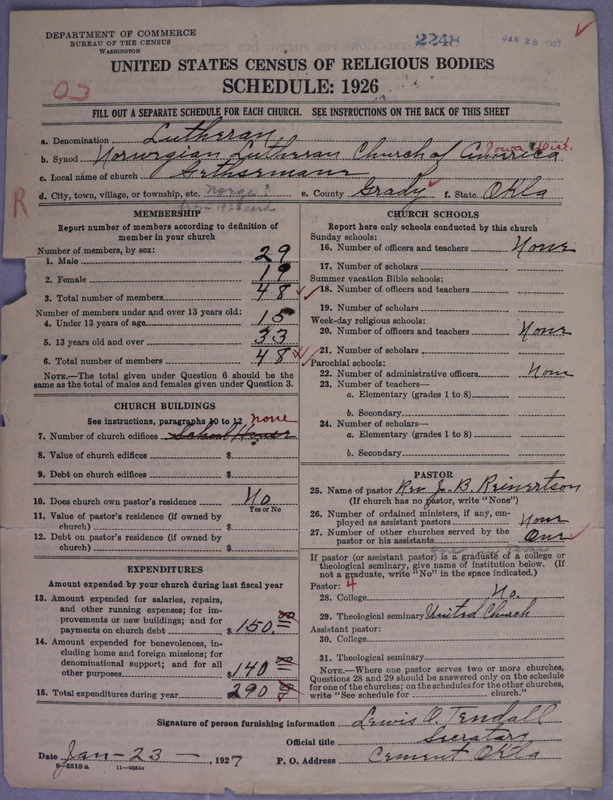 DEPARTMENT OF COMMERCE
BUREAU OF THE CENSUS
WASHINGTON
2248
JAN 26 1927
UNITED STATES CENSUS OF RELIGIOUS BODIES
SCHEDULE: 1926
03
FILL OUT A SEPARATE SCHEDULE FOR EACH CHURCH. SEE INSTRUCTIONS ON THE BACK OF THIS SHEET
a. Denomination Lutheran
b. Synod Norwegian Lutheran Church of America Iowa Dist.
c. Local name of church Gethsemane
d. City, town, village, or township, etc. Norge? e. County Grady f. State Okla
from 1920 card
R
MEMBERSHIP
Report number of members according to definition of
member in your church
Number of members, by sex:
1. Male 29
2. Female 19
3. Total number of members 48
Number of members under and over 13 years old:
4. Under 13 years of age 15
5. 13 years old and over 33
6. Total number of members 48
NOTE.—The total given under Question 6 should be the
same as the total of males and females given under Question 3.
CHURCH BUILDINGS
See instructions, paragraphs 10 to 12 none
7. Number of church edifices School House
8. Value of church edifices $
9. Debt on church edifices $
10. Does church own pastor's residence No
Yes or No
11. Value of pastor's residence (if owned by
church) $
12. Debt on pastor's residence (if owned by
church) $
EXPENDITURES
Amount expended by your church during last fiscal year
13. Amount expended for salaries, repairs,
and other running expenses; for im-
provements or new buildings; and for
payments on church debt $ 150.00
14. Amount expended for benevolences, in-
cluding home and foreign missions; for
denominational support; and for all
other purposes $ 140 00
15. Total expenditures during year $ 290 00
CHURCH SCHOOLS
Report here only schools conducted by this church
Sunday schools:
16. Number of officers and teachers None
17. Number of scholars
Summer vacation Bible schools:
18. Number of officers and teachers
19. Number of scholars
Week-day religious schools:
20. Number of officers and teachers None
21. Number of scholars
Parochial schools:
22. Number of administrative officers None
23. Number of teachers—
a. Elementary (grades 1 to 8)
b. Secondary
24. Number of scholars—
a. Elementary (grades 1 to 8)
b. Secondary
PASTOR
25. Name of pastor Rev J. B. Reinertson
(If church has no pastor, write "None")
26. Number of ordained ministers, if any, em-
ployed as assistant pastors None
27. Number of other churches served by the
pastor or his assistants One
If pastor (or assistant pastor) is a graduate of a college or
theological seminary, give name of institution below. (If
not a graduate, write "No" in the space indicated.)
Pastor: 4
28. College No.
29. Theological seminary United Church
Assistant pastor:
30. College
31. Theological seminary
NOTE.—Where one pastor serves two or more churches,
Questions 28 and 29 should be answered only on the schedule
for one of the churches; on the schedules for the other churches,
write "See schedule for church."
Signature of person furnishing information Lewis O. Tendall
Official title Secratary
Date Jan-23- , 1927 P. O. Address Cement Okla
8-5518a